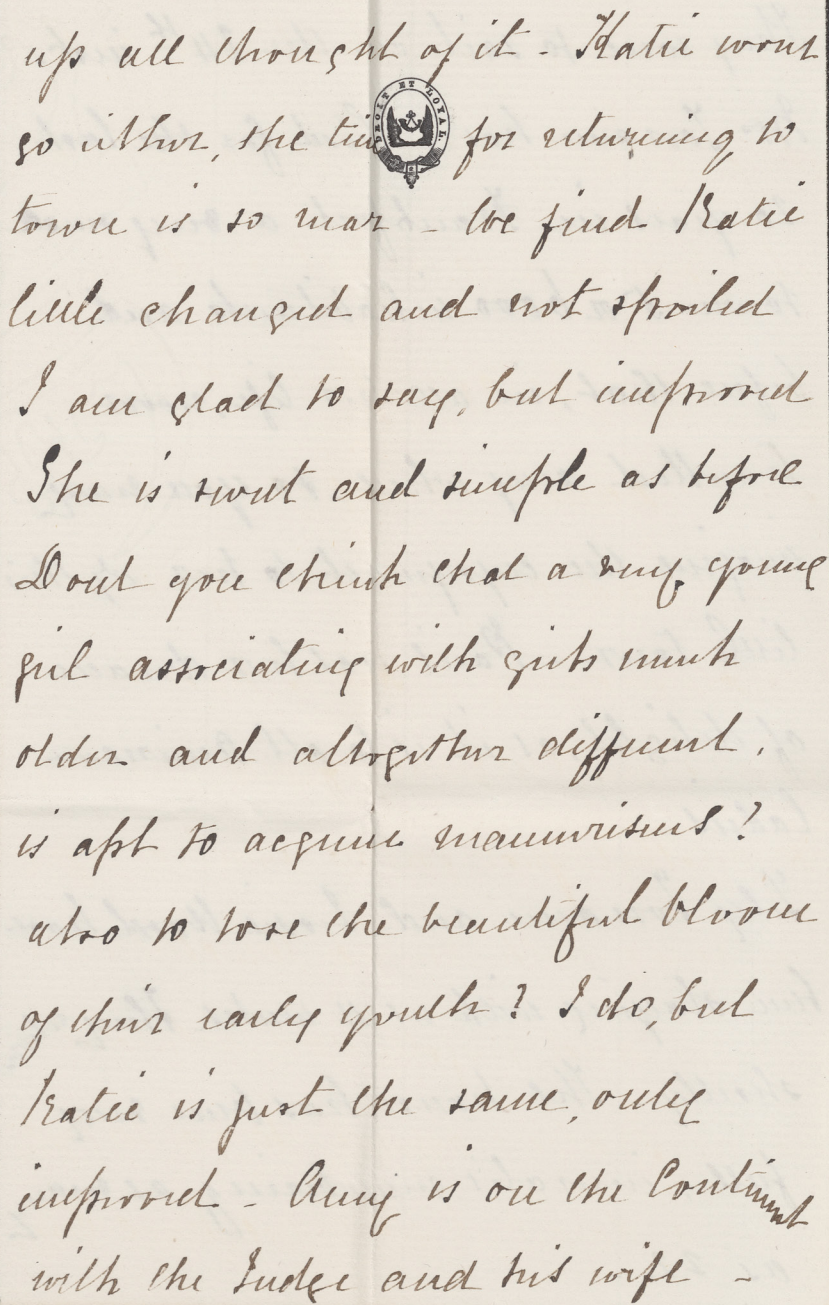 up all thought of it - Katie wont
DROIT ET LOYAL
go either, she time for returning to
town is so near - We find Katie
little changed and not spoiled
I am glad to say, but improved
She is sweet and simple as before
Dont you think that a very young
girl associating with girls much
older and altogether different,
is apt to acquire mannerisms?
also to lose the beautiful bloom
of their early youth? I do, but
Katie is just the same, only
improved - Amy is on the Continent
with the Judge and his wife -